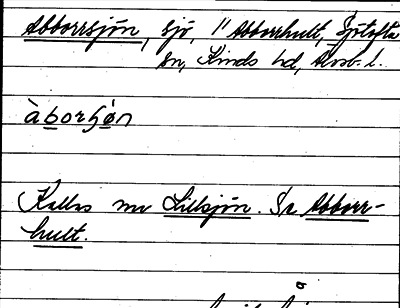 Abborrsjön, sjö, 1/1 Abborrhult, Sjötofta
sn, Kinds hd, Älvsb. l.
àborʂön
Kallas nu Lillsjön. Se Abborr-
hult.